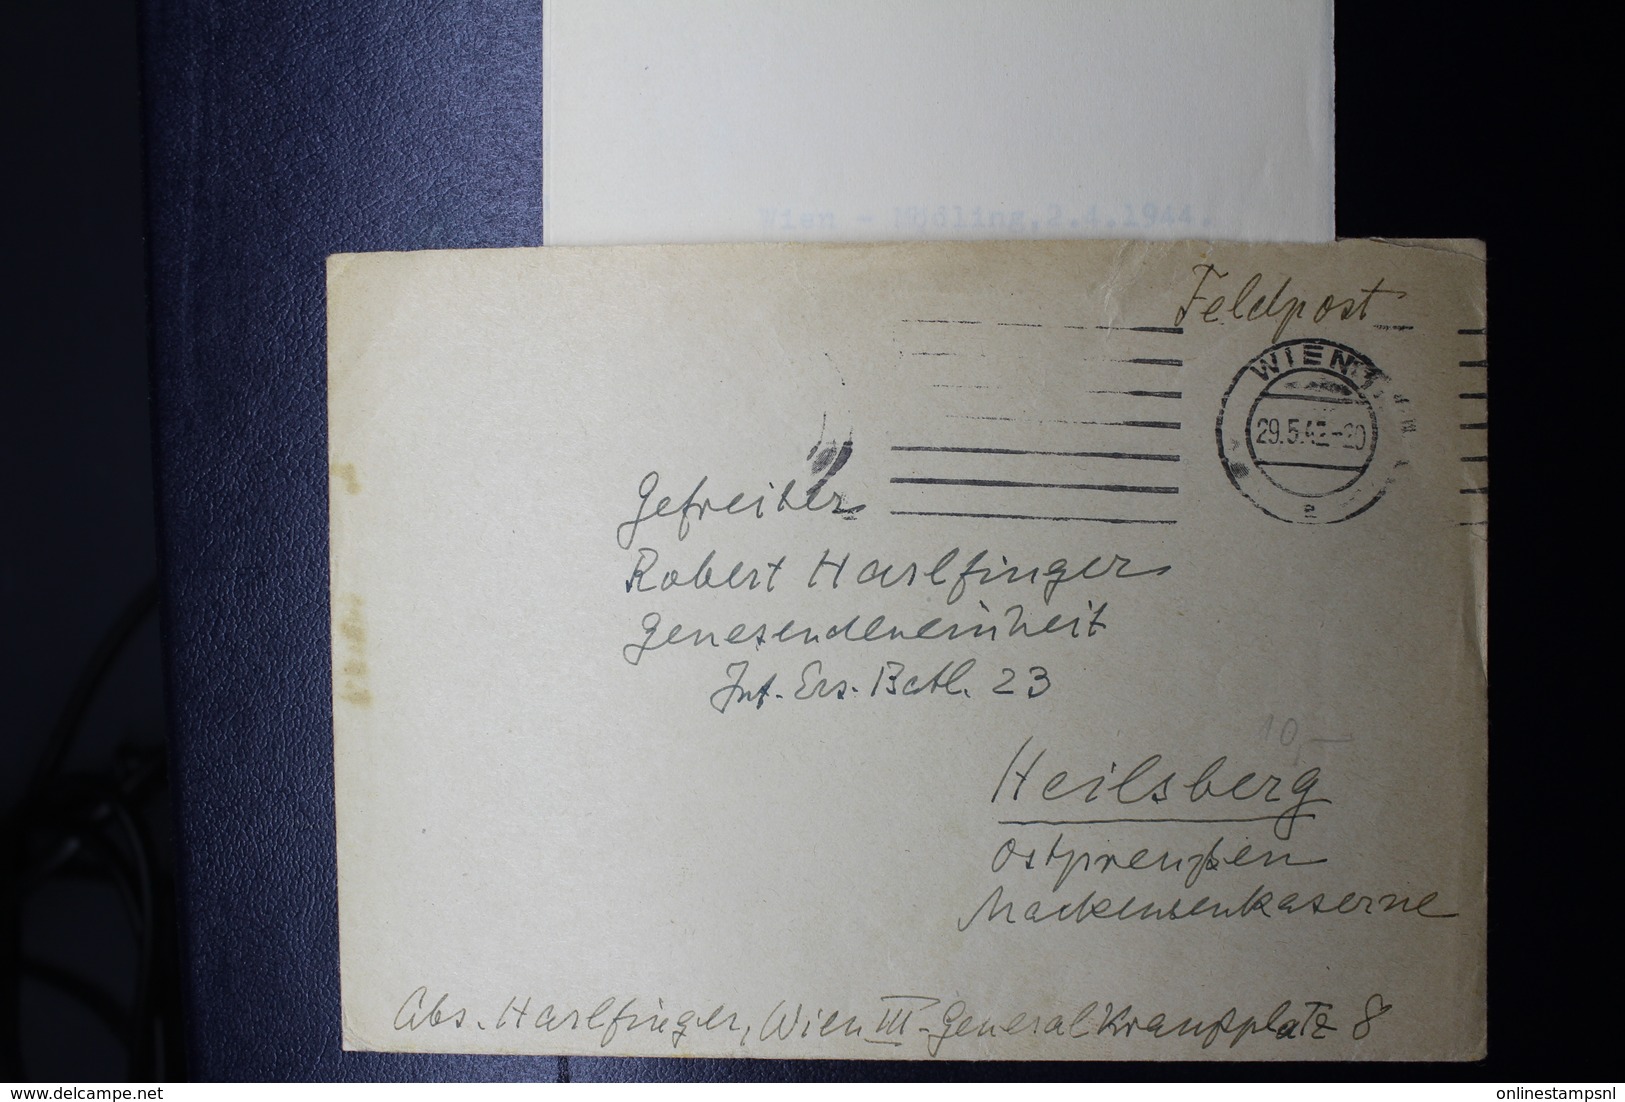 Wien - Mödling, 2.4.1944.
Feldpost
WIEN
29.5.42-20
Gefreiter
Robert Harlfinger
Genesendeneinheit
Inf. Ers. Batl. 23
10,-
Heilsberg
Ostpreußen
Mackensenkaserne
Abs. Harlfinger, Wien III - General Kraußplatz 8
delcampe.net
onlinestampsnl